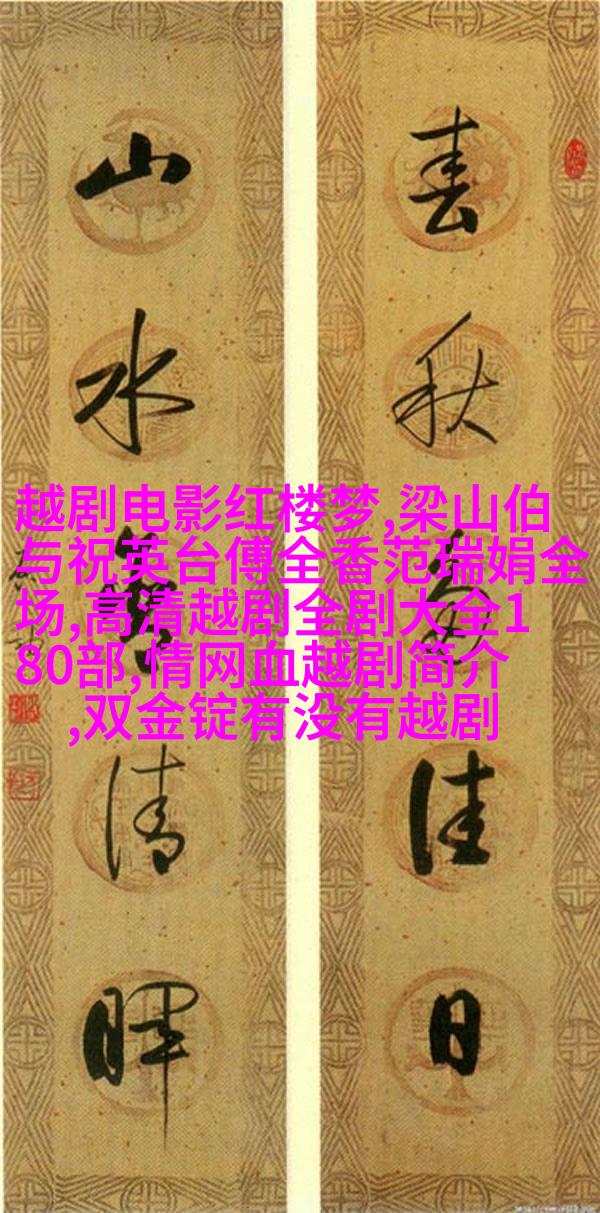 春秋多佳日
山水清暉
越剧电影红楼梦,梁山伯
与祝英台傅全香范瑞娟全
场,高清越剧全剧大全1
80部,情网血越剧简介
,双金锭有没有越剧